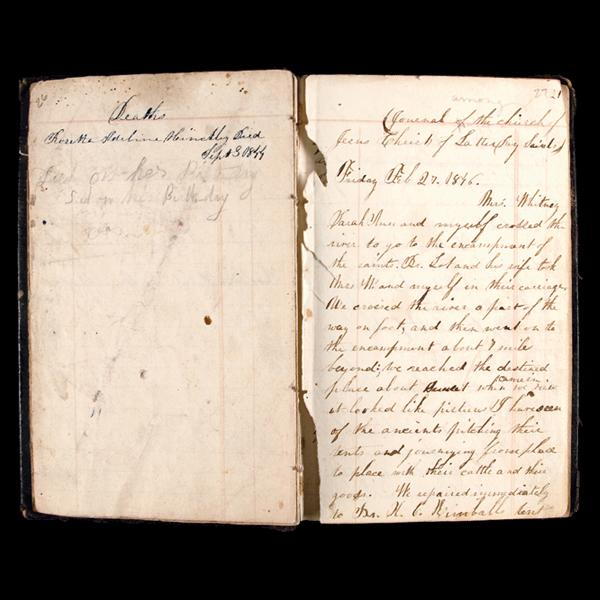 Deaths
Rosetta Adeline Hinckley Died
Sept 3 1844
Died on her Birthday
Died on her Birthday
among
2721
Journal of the Church of
Jesus Christ of Latter Day Saints
Friday Feb 27. 1846.
Mrs. Whitney
Sarah Ann and myself crossed the
river to go to the encampment of
the saints. Br. Lot and his wife took
Mrs W and myself in their carriage.
We crossed the river a part of the
way on foot, and then went on to
the encampment about 7 mile
beyond; we reached the destined
place about Sunset when came in view
it looked like pictures I have seen
of the ancients pitching their
tents and journeying from place
to place with their cattle and their
goods. We repaired immediately
to Br. H. C. Kimballs tent